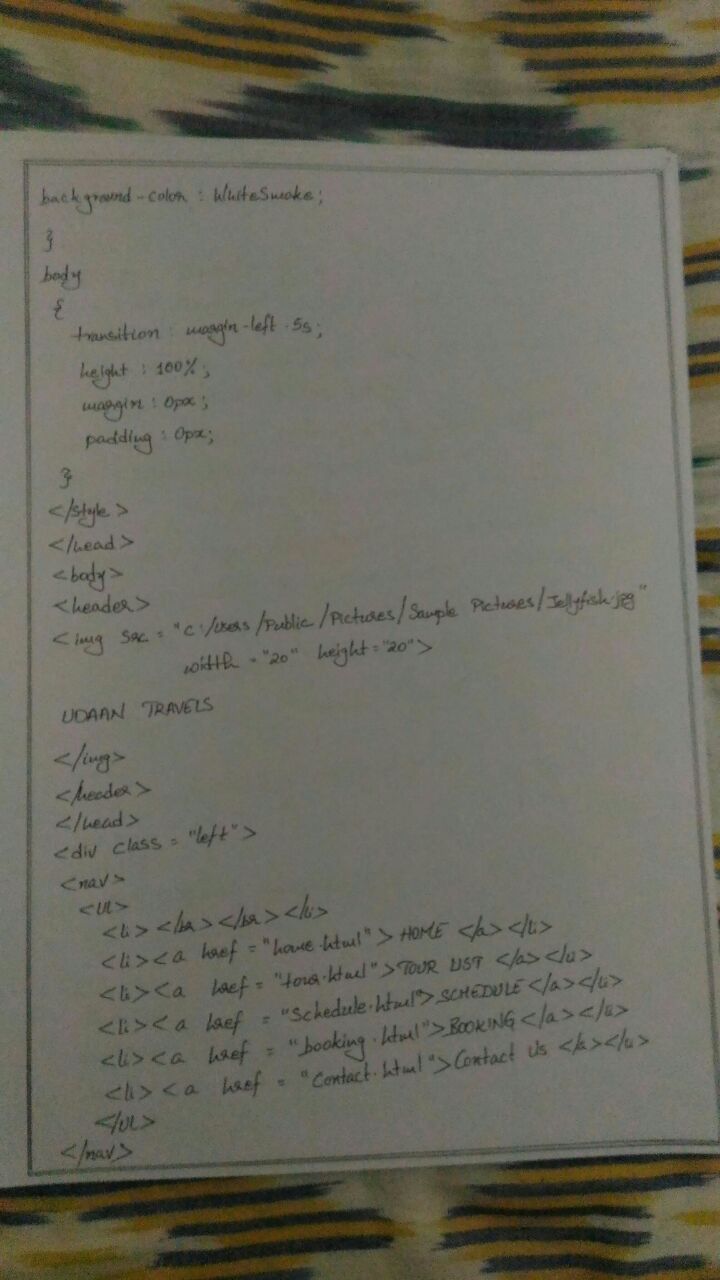 background-color : WhiteSmoke;
}
body
{
transition : margin-left .5s;
height : 100%;
margin : 0px;
padding : 0px;
}
</style>
</head>
<body>
<header>
<img src = "C:/Users/Public/Pictures/Sample Pictures/Jellyfish.jpg"
width = "20" height = "20">
UDAAN TRAVELS
</img>
</header>
</head>
<div class = "left">
<nav>
<UL>
<li> </br> </br> </li>
<li><a href = "home.html"> HOME </a> </li>
<li><a href = "tour.html">TOUR LIST </a></li>
<li><a href = "Schedule.html">SCHEDULE </a></li>
<li><a href = "booking.html">BOOKING </a></li>
<li><a href = "Contact.html">Contact Us </a></li>
</UL>
</nav>